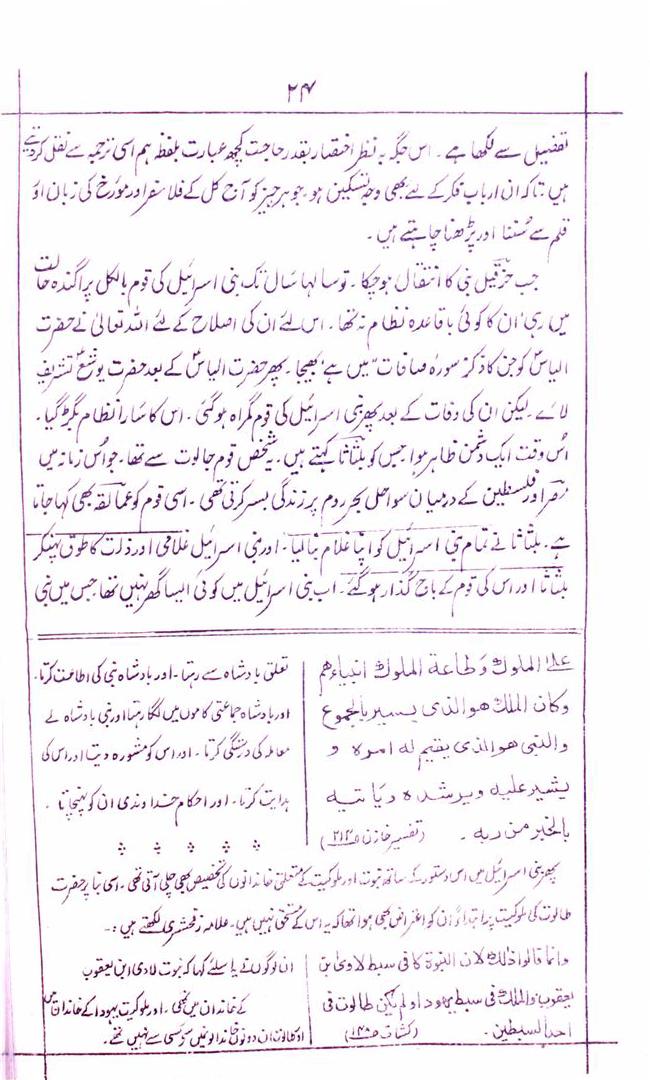 ۲۴
تفصیل سے لکھا ہے۔ اس جگہ بہ نظر اختصار بقدر حاجت کچھ عبارت بلفظہ ہم اسی ترجمہ سے نقل کر دیتے
ہیں۔ تاکہ ان ارباب فکر کے لئے بھی وجہ تسکین ہو، جو ہر چیز کو آج کل کے فلاسفر اور مؤرخ کی زبان اور
قلم سے سُننا اور پڑھنا چاہتے ہیں۔
جب حزقیل نبی کا انتقال ہو چکا۔ تو سالہا سال تک بنی اسرائیل کی قوم بالکل پراگندہ حالت
میں رہی، ان کا کوئی باقاعدہ نظام نہ تھا۔ اس لئے ان کی اصلاح کے لئے اللہ تعالیٰ نے حضرت
الیاسؑ کو جن کا ذکر سورہ صافات میں ہے، بھیجا۔ پھر حضرت الیاسؑ کے بعد حضرت یوشعؑ تشریف
لائے۔ لیکن ان کی وفات کے بعد پھر بنی اسرائیل کی قوم گمراہ ہو گئی۔ اس کا سارا نظام بگڑ گیا۔
اُس وقت ایک دشمن ظاہر ہوا جس کو بلثاثا کہتے ہیں۔ یہ شخص قوم جالوت سے تھا۔ جو اُس زمانہ میں
مصر اور فلسطین کے درمیان سواحل بحر روم پر زندگی بسر کرتی تھی۔ اسی قوم کو عمالقہ بھی کہا جاتا
ہے۔ بلثاثا نے تمام بنی اسرائیل کو اپنا غلام بنا لیا۔ اور بنی اسرائیل غلامی اور ذلت کا طوق پہنکر
بلثاثا اور اس کی قوم کے باج گذار ہو گئے۔ اب بنی اسرائیل میں کوئی ایسا گھر نہیں تھا جس میں نبی
علی الملوك وطاعة الملوك انبياءهم
وكان الملك هو الذی يسير بالجموع
والنبی هو الذی يقيم له امره و
يشير عليه ويرشده وياتيه
بالخبر من ربه۔ (تفسیر خازن ص۲۱۲)
تعلق بادشاہ سے رہتا۔ اور بادشاہ نبی کی اطاعت کرتا۔
اور بادشاہ جماعتی کاموں میں لگا رہتا اور نبی بادشاہ کے
معاملہ کی درستگی کرتا۔ اور اس کو مشورہ دیتا اور اس کی
ہدایت کرتا۔ اور احکام خداوندی ان کو پہنچاتا۔
پھر بنی اسرائیل میں اس دستور کے ساتھ نبوت اور ملوکیت کے متعلق خاندانوں کی تخصیص بھی چلی آتی تھی۔ اسی بنا پر حضرت
طالوت کی ملوکیت پر ابتداءً ان کو اعتراض بھی ہوا تھا کہ یہ اس کے مستحق نہیں ہیں۔ علامہ زمخشری لکھتے ہیں:-
وانما قالوا ذلك لان النبوة كانت فی سبط لاوی بن
يعقوب والملك فی سبط يهودا ولم يكن طالوت فی
احد السبطين۔ (کشاف ص۱۴۸)
ان لوگوں نے یہ اسلئے کہا کہ نبوت لاوی ابن یعقوب
کے خاندان میں تھی۔ اور ملوکیت یہودا کے خاندان میں
اور طالوت ان دونوں خاندانوں میں سے کسی سے نہیں تھے۔